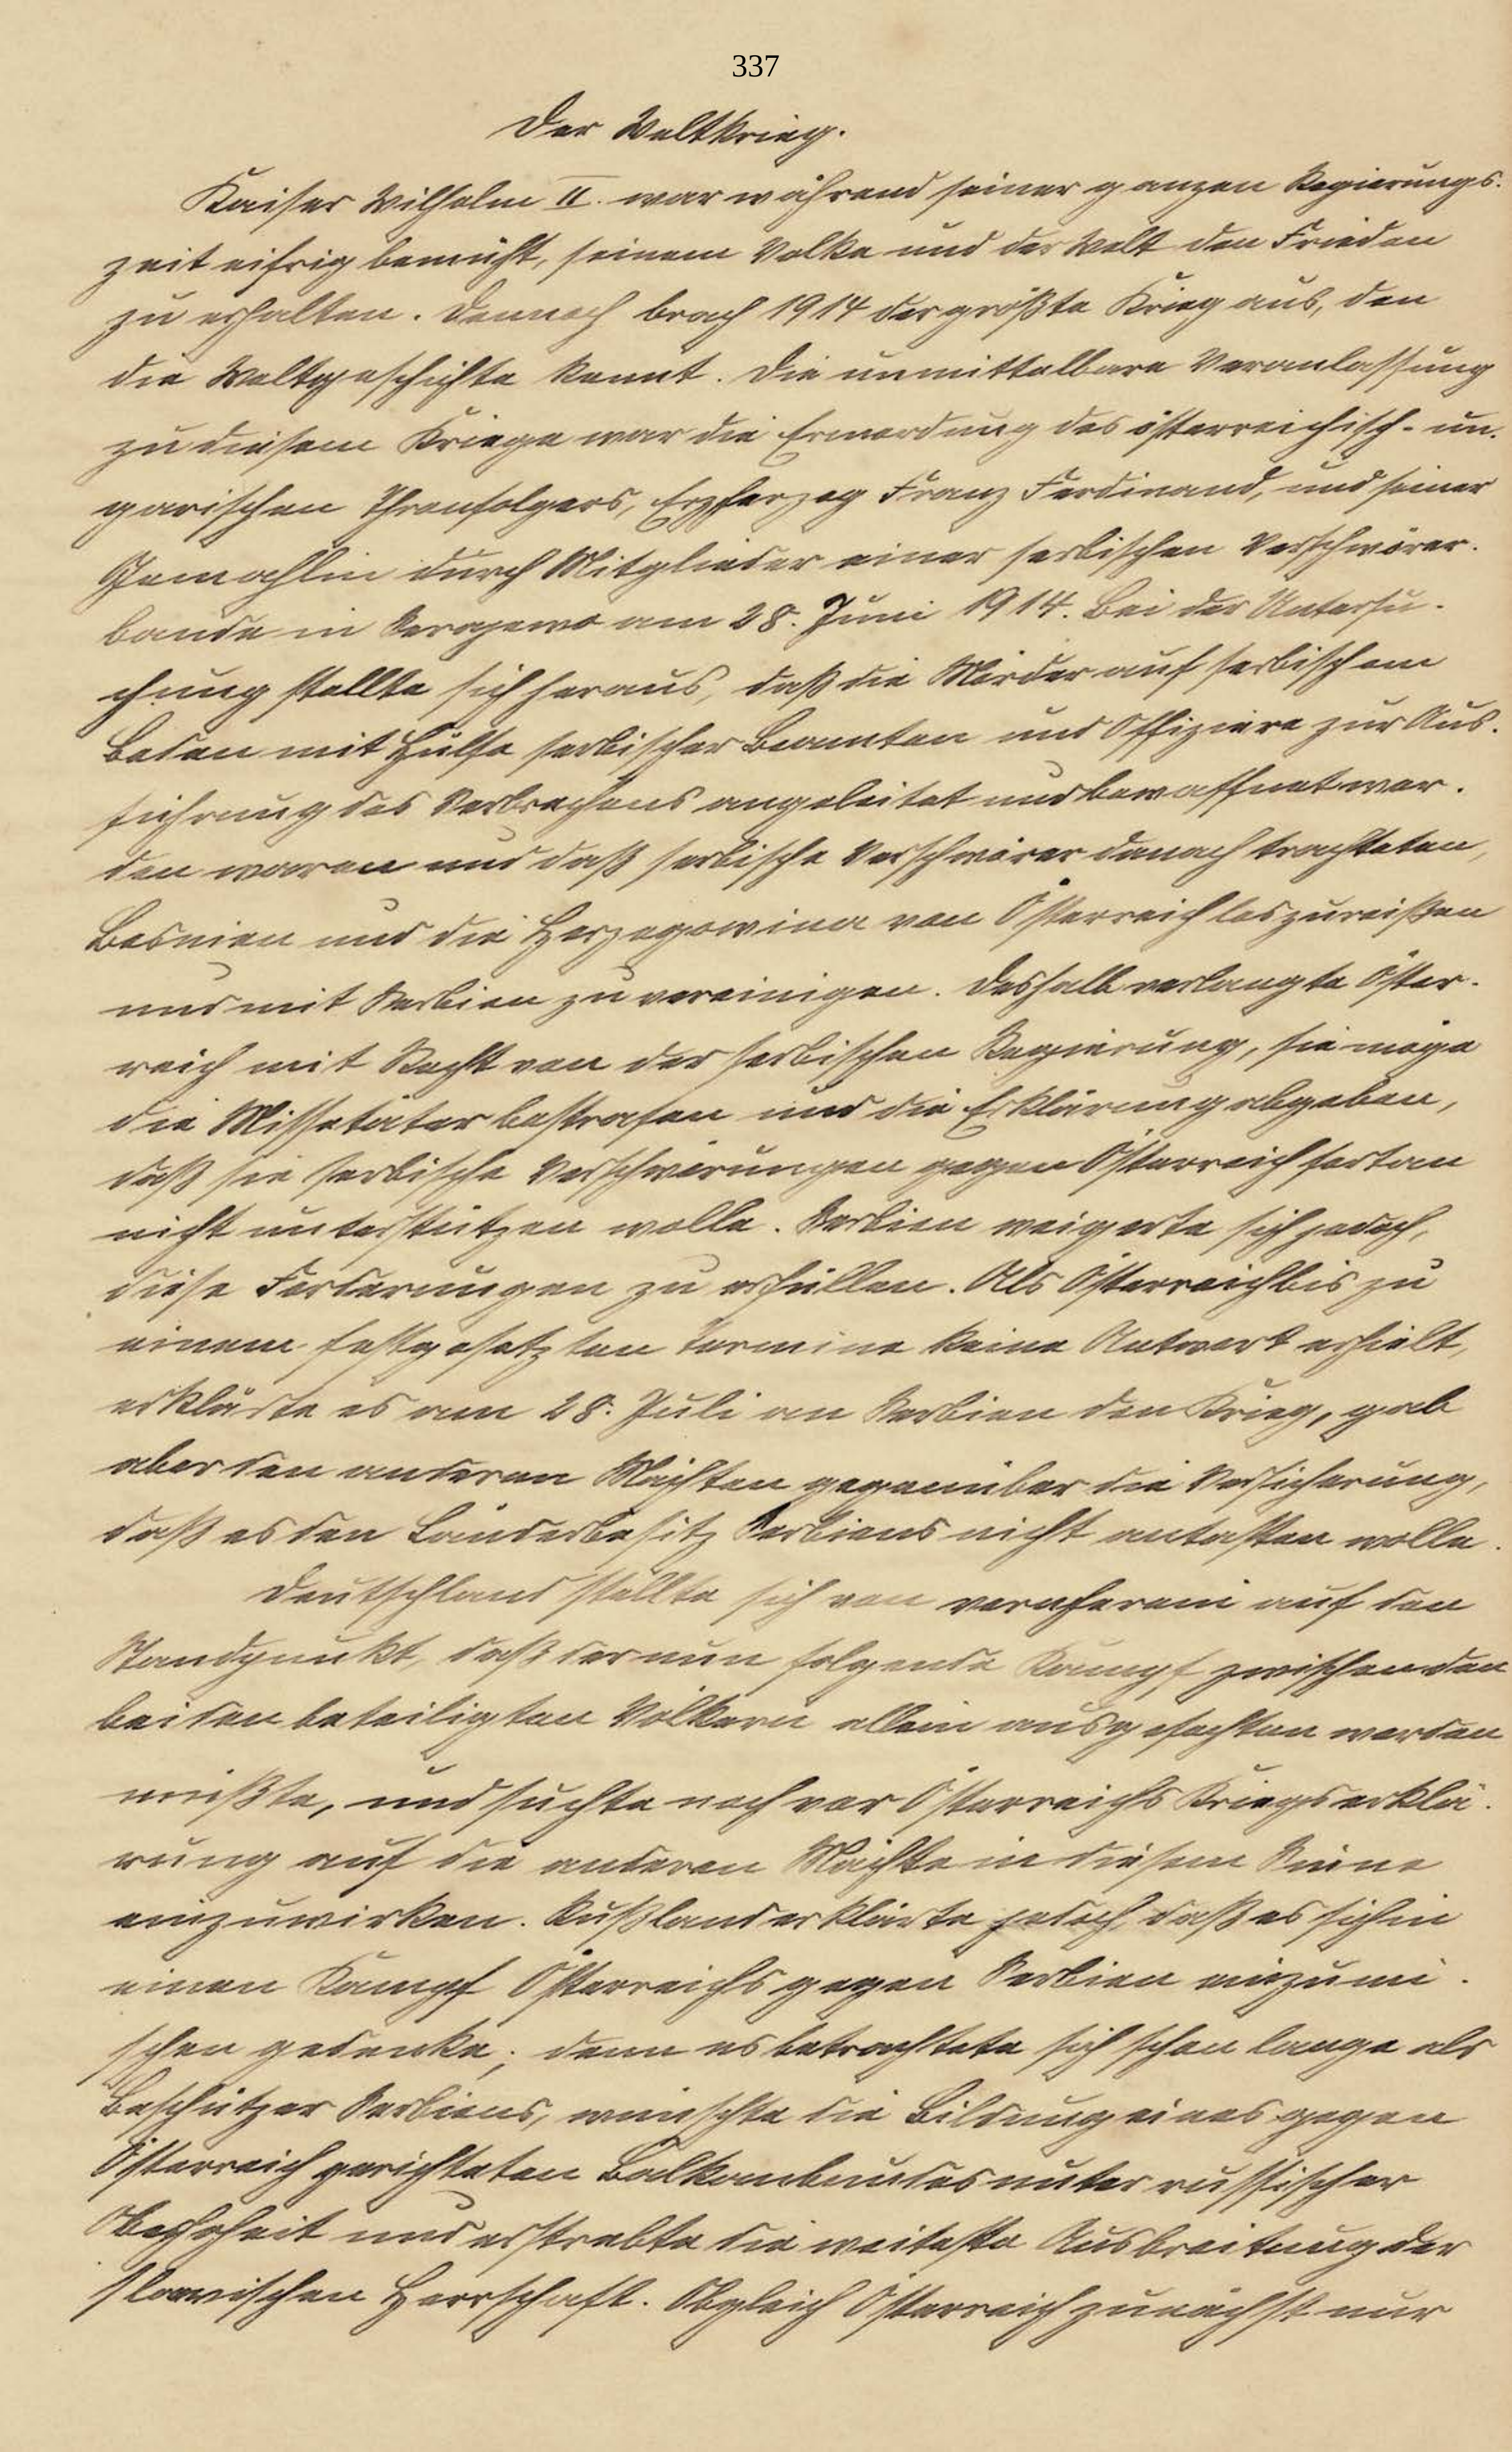 337
Der Weltkrieg.
Kaiser Wilhelm II. war während seiner ganzen Regierungs-
zeit eifrig bemüht, seinem Volke und der Welt den Frieden
zu erhalten. Dennoch brach 1914 der größte Krieg aus, den
die Weltgeschichte kennt. Die unmittelbare Veranlassung
zu diesem Kriege war die Ermordung des österreichisch-un-
garischen Thronfolgers, Erzherzog Franz Ferdinand, und seiner
Gemahlin durch Mitglieder einer serbischen Verschwörer-
bande in Serajewo am 28. Juni 1914. Bei der Untersu-
chung stellte sich heraus, daß die Mörder auf serbischem
Boden mit Hülfe serbischer Beamten und Offiziere zur Aus-
führung des Verbrechens angeleitet und bewaffnet wor-
den waren und daß serbische Verschwörer danach trachteten,
Bosnien und die Herzegowina von Österreich loszureißen
und mit Serbien zu vereinigen. Deshalb verlangte Öster-
reich mit Recht von der serbischen Regierung, sie möge
die Missetäter bestrafen und die Erklärung abgeben,
daß sie serbische Verschwörungen gegen Österreich fortan
nicht unterstützen wolle. Serbien weigerte sich jedoch,
diese Forderungen zu erfüllen. Als Österreich bis zu
einem festgesetzten Termine keine Antwort erhielt,
erklärte es am 28. Juli an Serbien den Krieg, gab
aber den anderen Mächten gegenüber die Versicherung,
daß es den Länderbesitz Serbiens nicht antasten wolle.
Deutschland stellte sich von vornherein auf den
Standpunkt, daß der nun folgende Kampf zwischen den
beiden beteiligten Völkern allein ausgefochten werden
müßte, und suchte noch vor Österreichs Kriegserklä-
rung auf die anderen Mächte in diesem Sinne
einzuwirken. Rußland erklärte jedoch, daß es sich in
einen Kampf Österreichs gegen Serbien einzumi-
schen gedenke; denn es betrachtete sich schon lange als
Beschützer Serbiens, wünschte die Bildung eines gegen
Österreich gerichteten Balkanbundes unter russischer
Oberhoheit und erstrebte die weiteste Ausbreitung der
slawischen Herrschaft. Obgleich Österreich zunächst nur